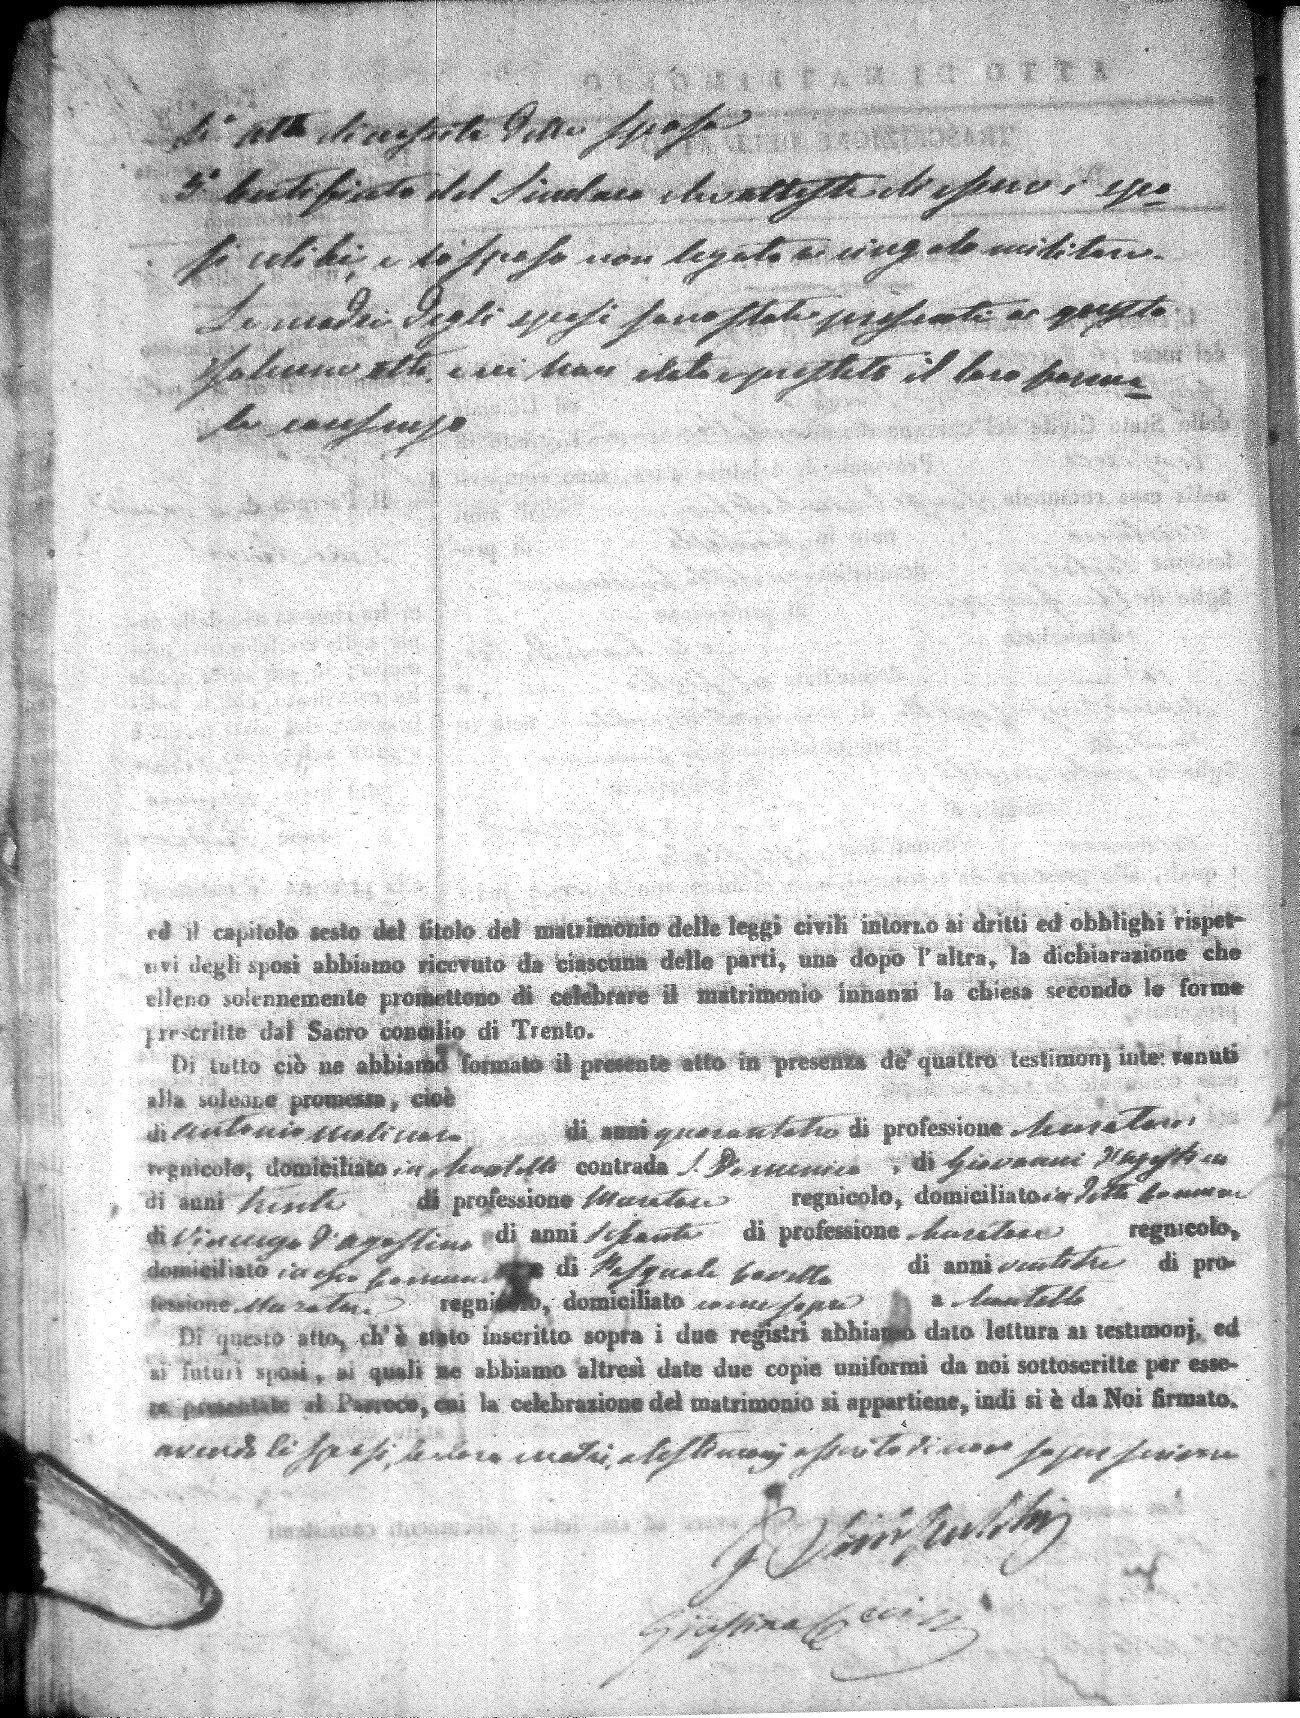 4° Atto di nascita dello sposo
5° Certificato del Sindaco che attesta di essere i spo=
si celibi, e lo sposo non legato a cingolo militare.
Le madri degli sposi sono state presenti a questo
solenne atto, e ci han dato e prestato il loro forma=
le consenso
ed il capitolo sesto del titolo del matrimonio delle leggi civili intorno ai dritti ed obblighi rispet-
ivi degli sposi abbiamo ricevuto da ciascuna delle parti, una dopo l'altra, la dichiarazione che
elleno solennemente promettono di celebrare il matrimonio innanzi la chiesa secondo le forme
prescritte dal Sacro concilio di Trento.
Di tutto ciò ne abbiamo formato il presente atto in presenza de' quattro testimonj intervenuti
alla solenne promessa, cioè
di Antonio Molinaro di anni quarantatre di professione Muratore
regnicolo, domiciliato in contrada S. Domenico, di Giovanni d'Agostino
di anni trenta di professione Muratore regnicolo, domiciliato in detto Comune
di Vincenzo d'Agostino di anni sessanta di professione Muratore regnicolo,
domiciliato in esso Comune e di Pasquale di anni ventitre di pro-
fessione Muratore regnicolo, domiciliato come sopra a
Di questo atto, ch'è stato inscritto sopra i due registri abbiamo dato lettura ai testimonj, ed
ai futuri sposi, ai quali ne abbiamo altresì date due copie uniformi da noi sottoscritte per esse-
re presentate al Parroco, cui la celebrazione del matrimonio si appartiene, indi si è da Noi firmato.
avendo li sposi, le loro madri, e testimonj asserito di non saper scrivere